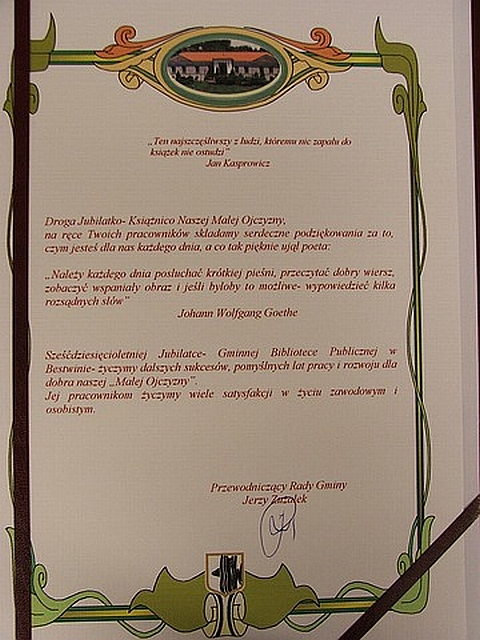 „Ten najszczęśliwszy z ludzi, któremu nic zapału do
książek nie ostudzi”
Jan Kasprowicz
Droga Jubilatko- Książnico Naszej Małej Ojczyzny,
na ręce Twoich pracowników składamy serdeczne podziękowania za to,
czym jesteś dla nas każdego dnia, a co tak pięknie ujął poeta:
„Należy każdego dnia posłuchać krótkiej pieśni, przeczytać dobry wiersz,
zobaczyć wspaniały obraz i jeśli byłoby to możliwe- wypowiedzieć kilka
rozsądnych słów”
Johann Wolfgang Goethe
Sześćdziesięcioletniej Jubilatce- Gminnej Bibliotece Publicznej w
Bestwinie- życzymy dalszych sukcesów, pomyślnych lat pracy i rozwoju dla
dobra naszej „Małej Ojczyzny”.
Jej pracownikom życzymy wiele satysfakcji w życiu zawodowym i
osobistym.
Przewodniczący Rady Gminy
Jerzy Zużałek